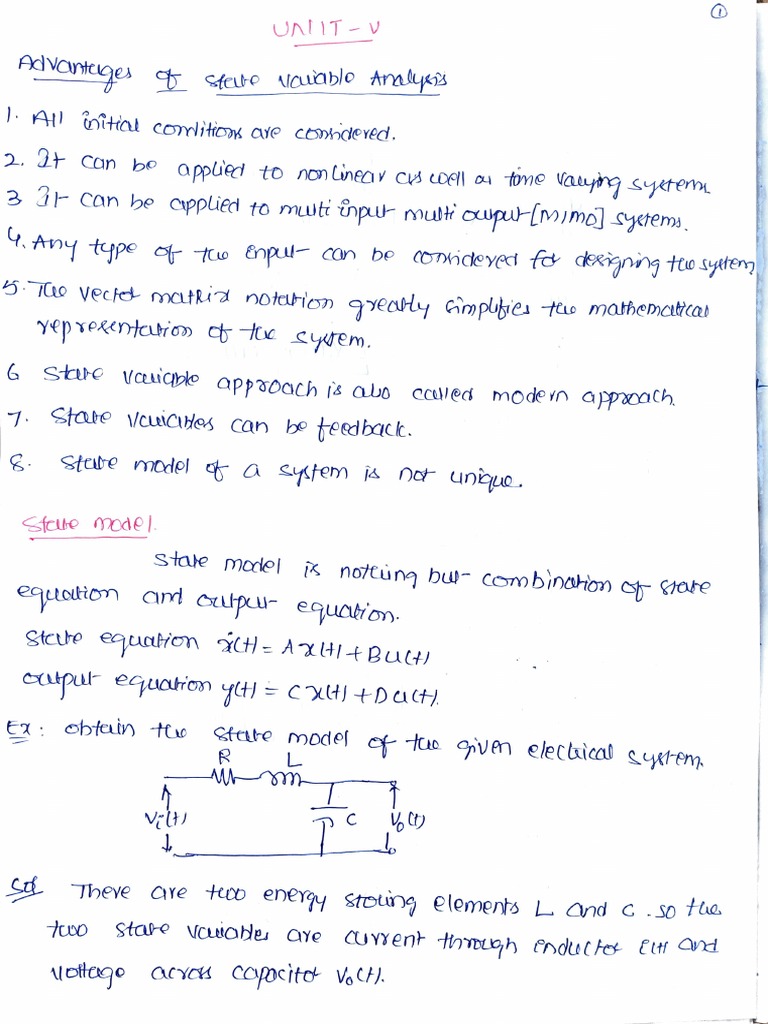 ①
UNIIT - V
Advantages of State Variable Analysis
1. All initial conditions are considered.
2. It can be applied to nonlinear as well as time varying system.
3 It can be applied to multi input multi output [MIMO] systems.
4. Any type of the input can be considered for designing the system
5. The vector matrix notation greatly simplifies the mathematical
representation of the system.
6 State variable approach is also called modern approach.
7. State variables can be feedback.
8. State model of a system is not unique.
State model.
State model is nothing but combination of state
equation and output equation.
State equation ẋ(t) = A x(t) + B u(t)
output equation y(t) = C x(t) + D u(t).
Ex : obtain the state model of the given electrical system.
R L
Vi(t) C Vo(t)
Sol There are two energy storing elements L and C. so the
two state variables are current through inductor i(t) and
voltage across capacitor Vo(t).